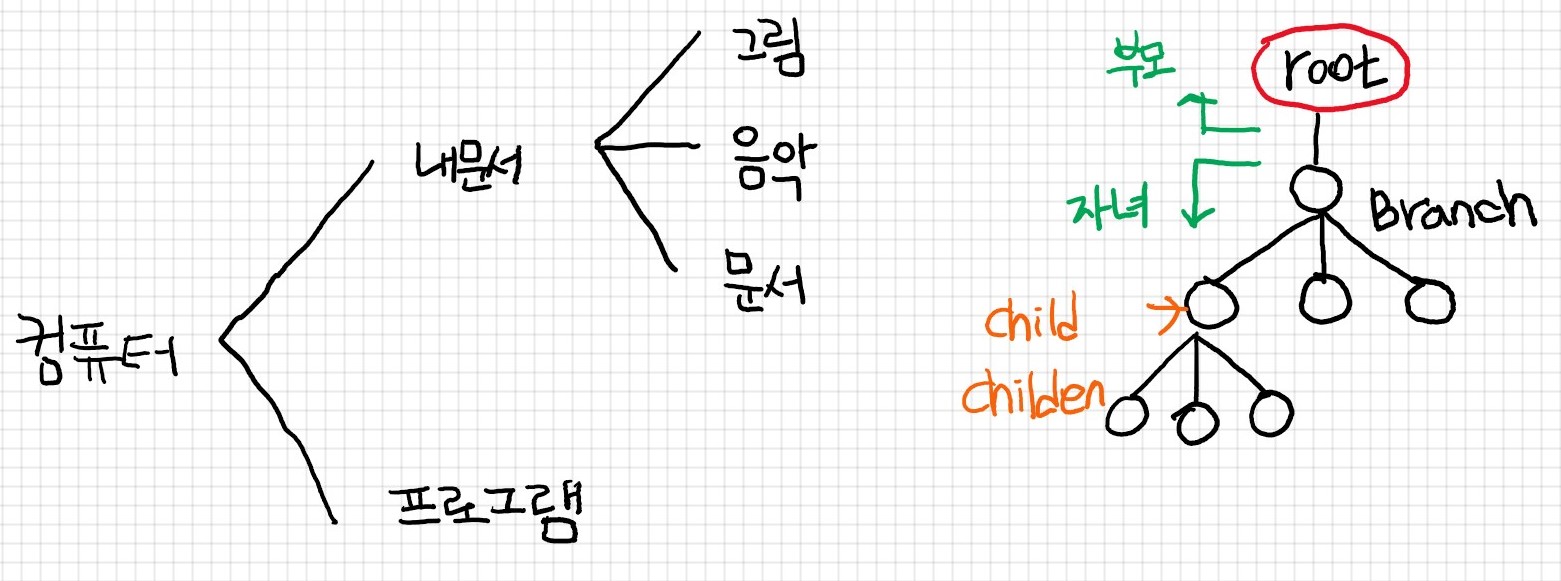 컴퓨터
내문서
프로그램
그림
음악
문서
root
부모
자녀
Branch
child
childen